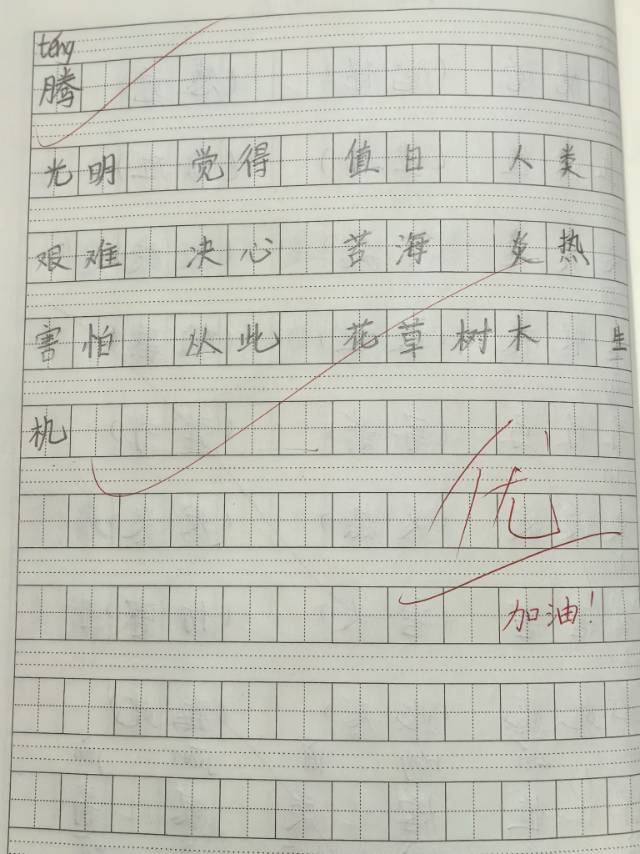 téng
腾
光明 觉得 值日 人类
艰难 决心 苦海 炎热
害怕 从此 花草树木 生
机
优
加油！